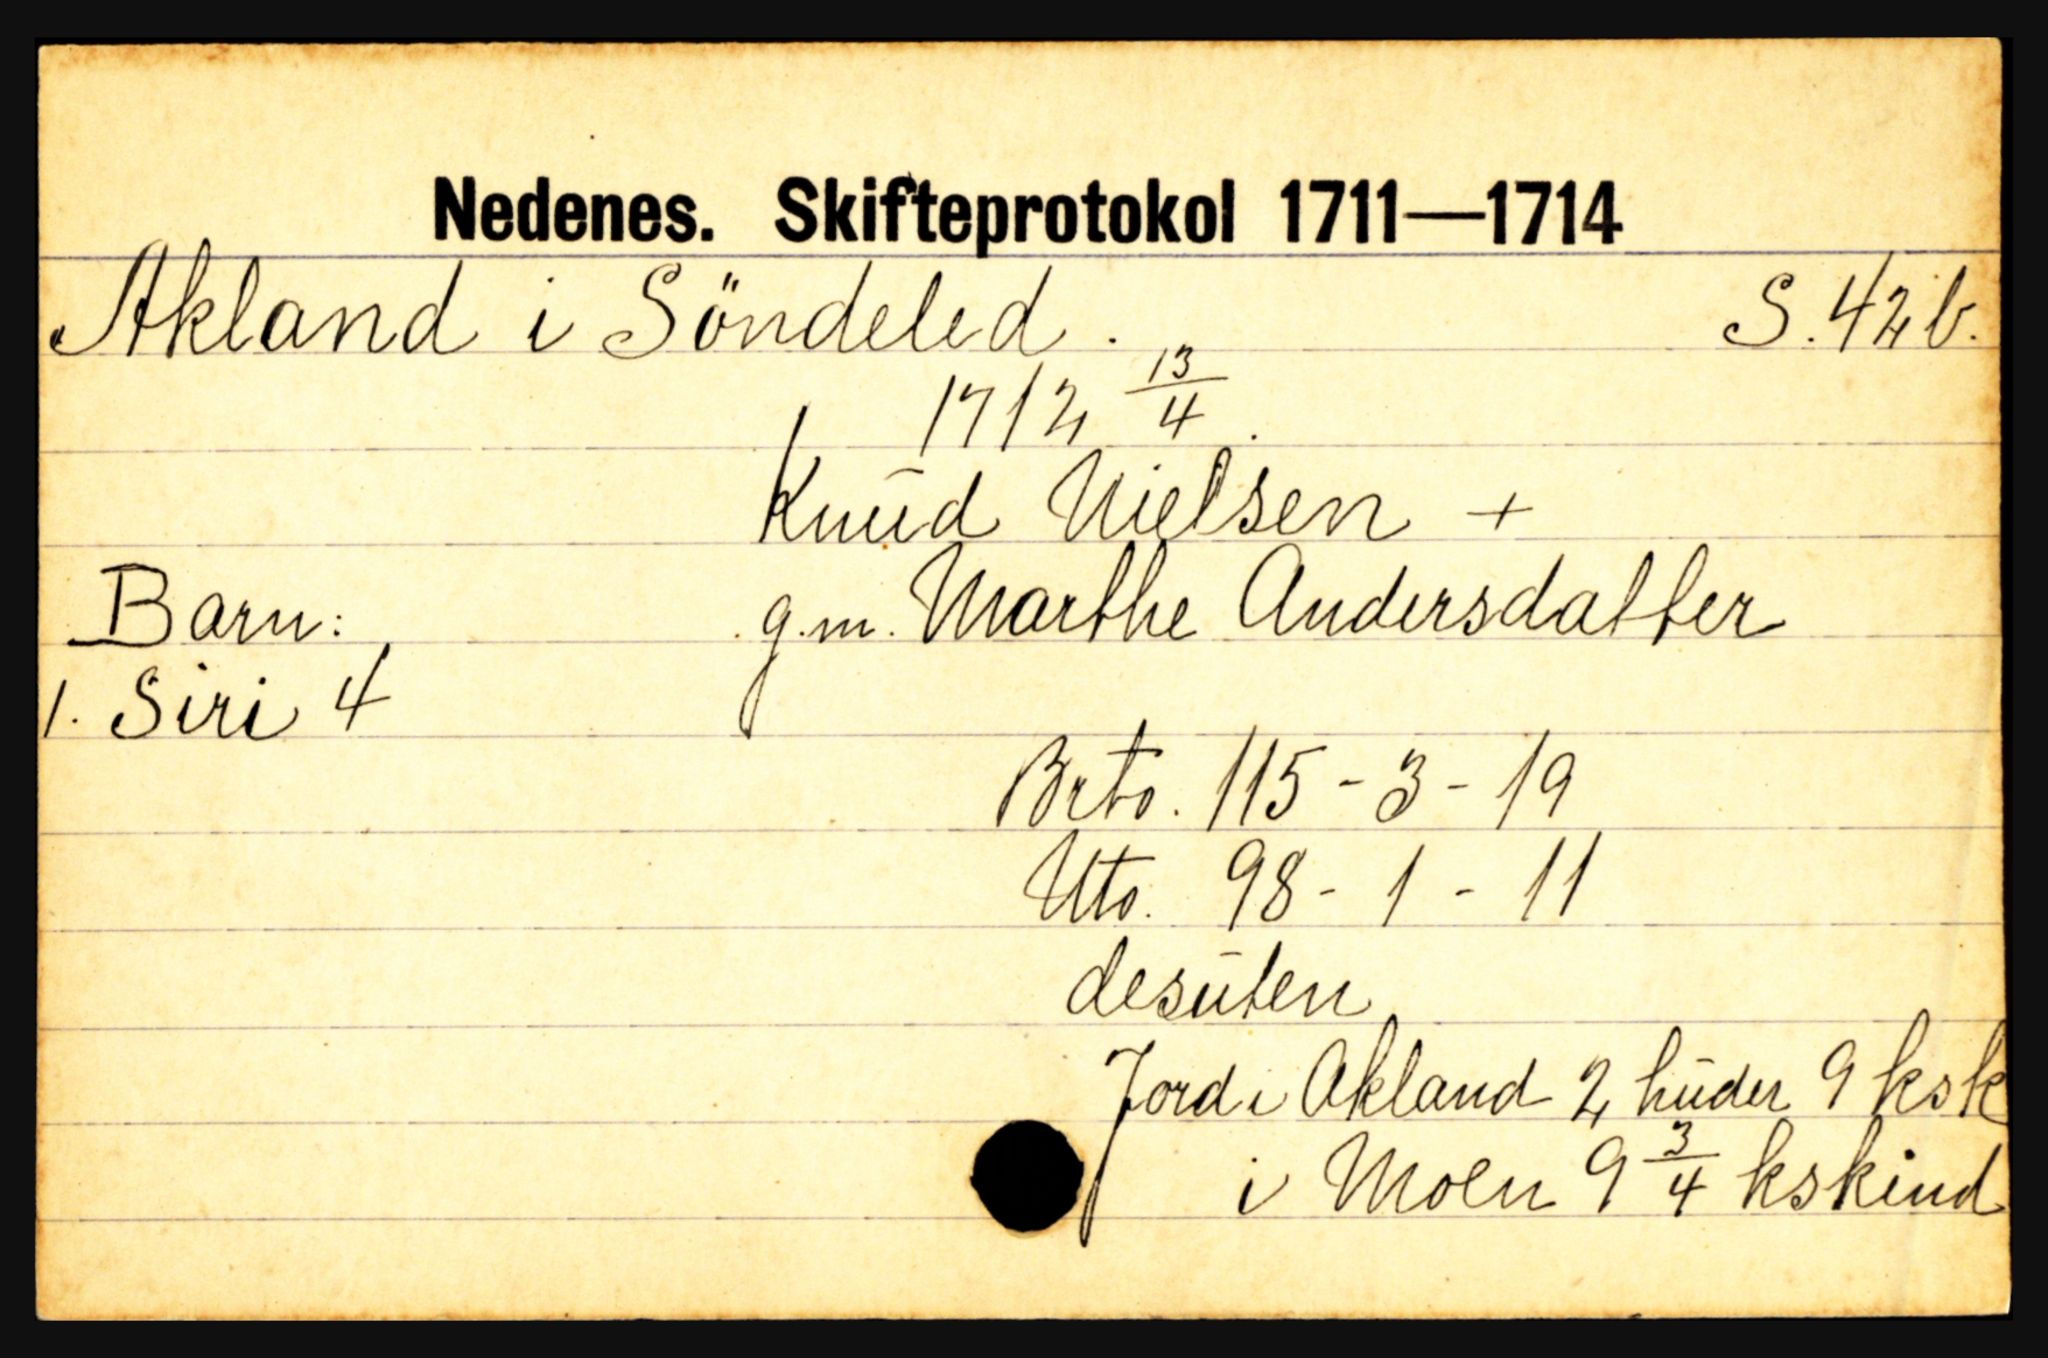 Nedenes. Skifteprotokol 1711—1714
Akland i Söndeled. S. 42b.
1712 13/4.
Knud Nielsen +
Barn: g.m. Marthe Andersdatter
1. Siri 4
Brto. 115 - 3 - 19
Nto. 98 - 1 - 11
desuten
Jord i Akland 2 huder 9 ksk
i Moen 9 3/4 kskind